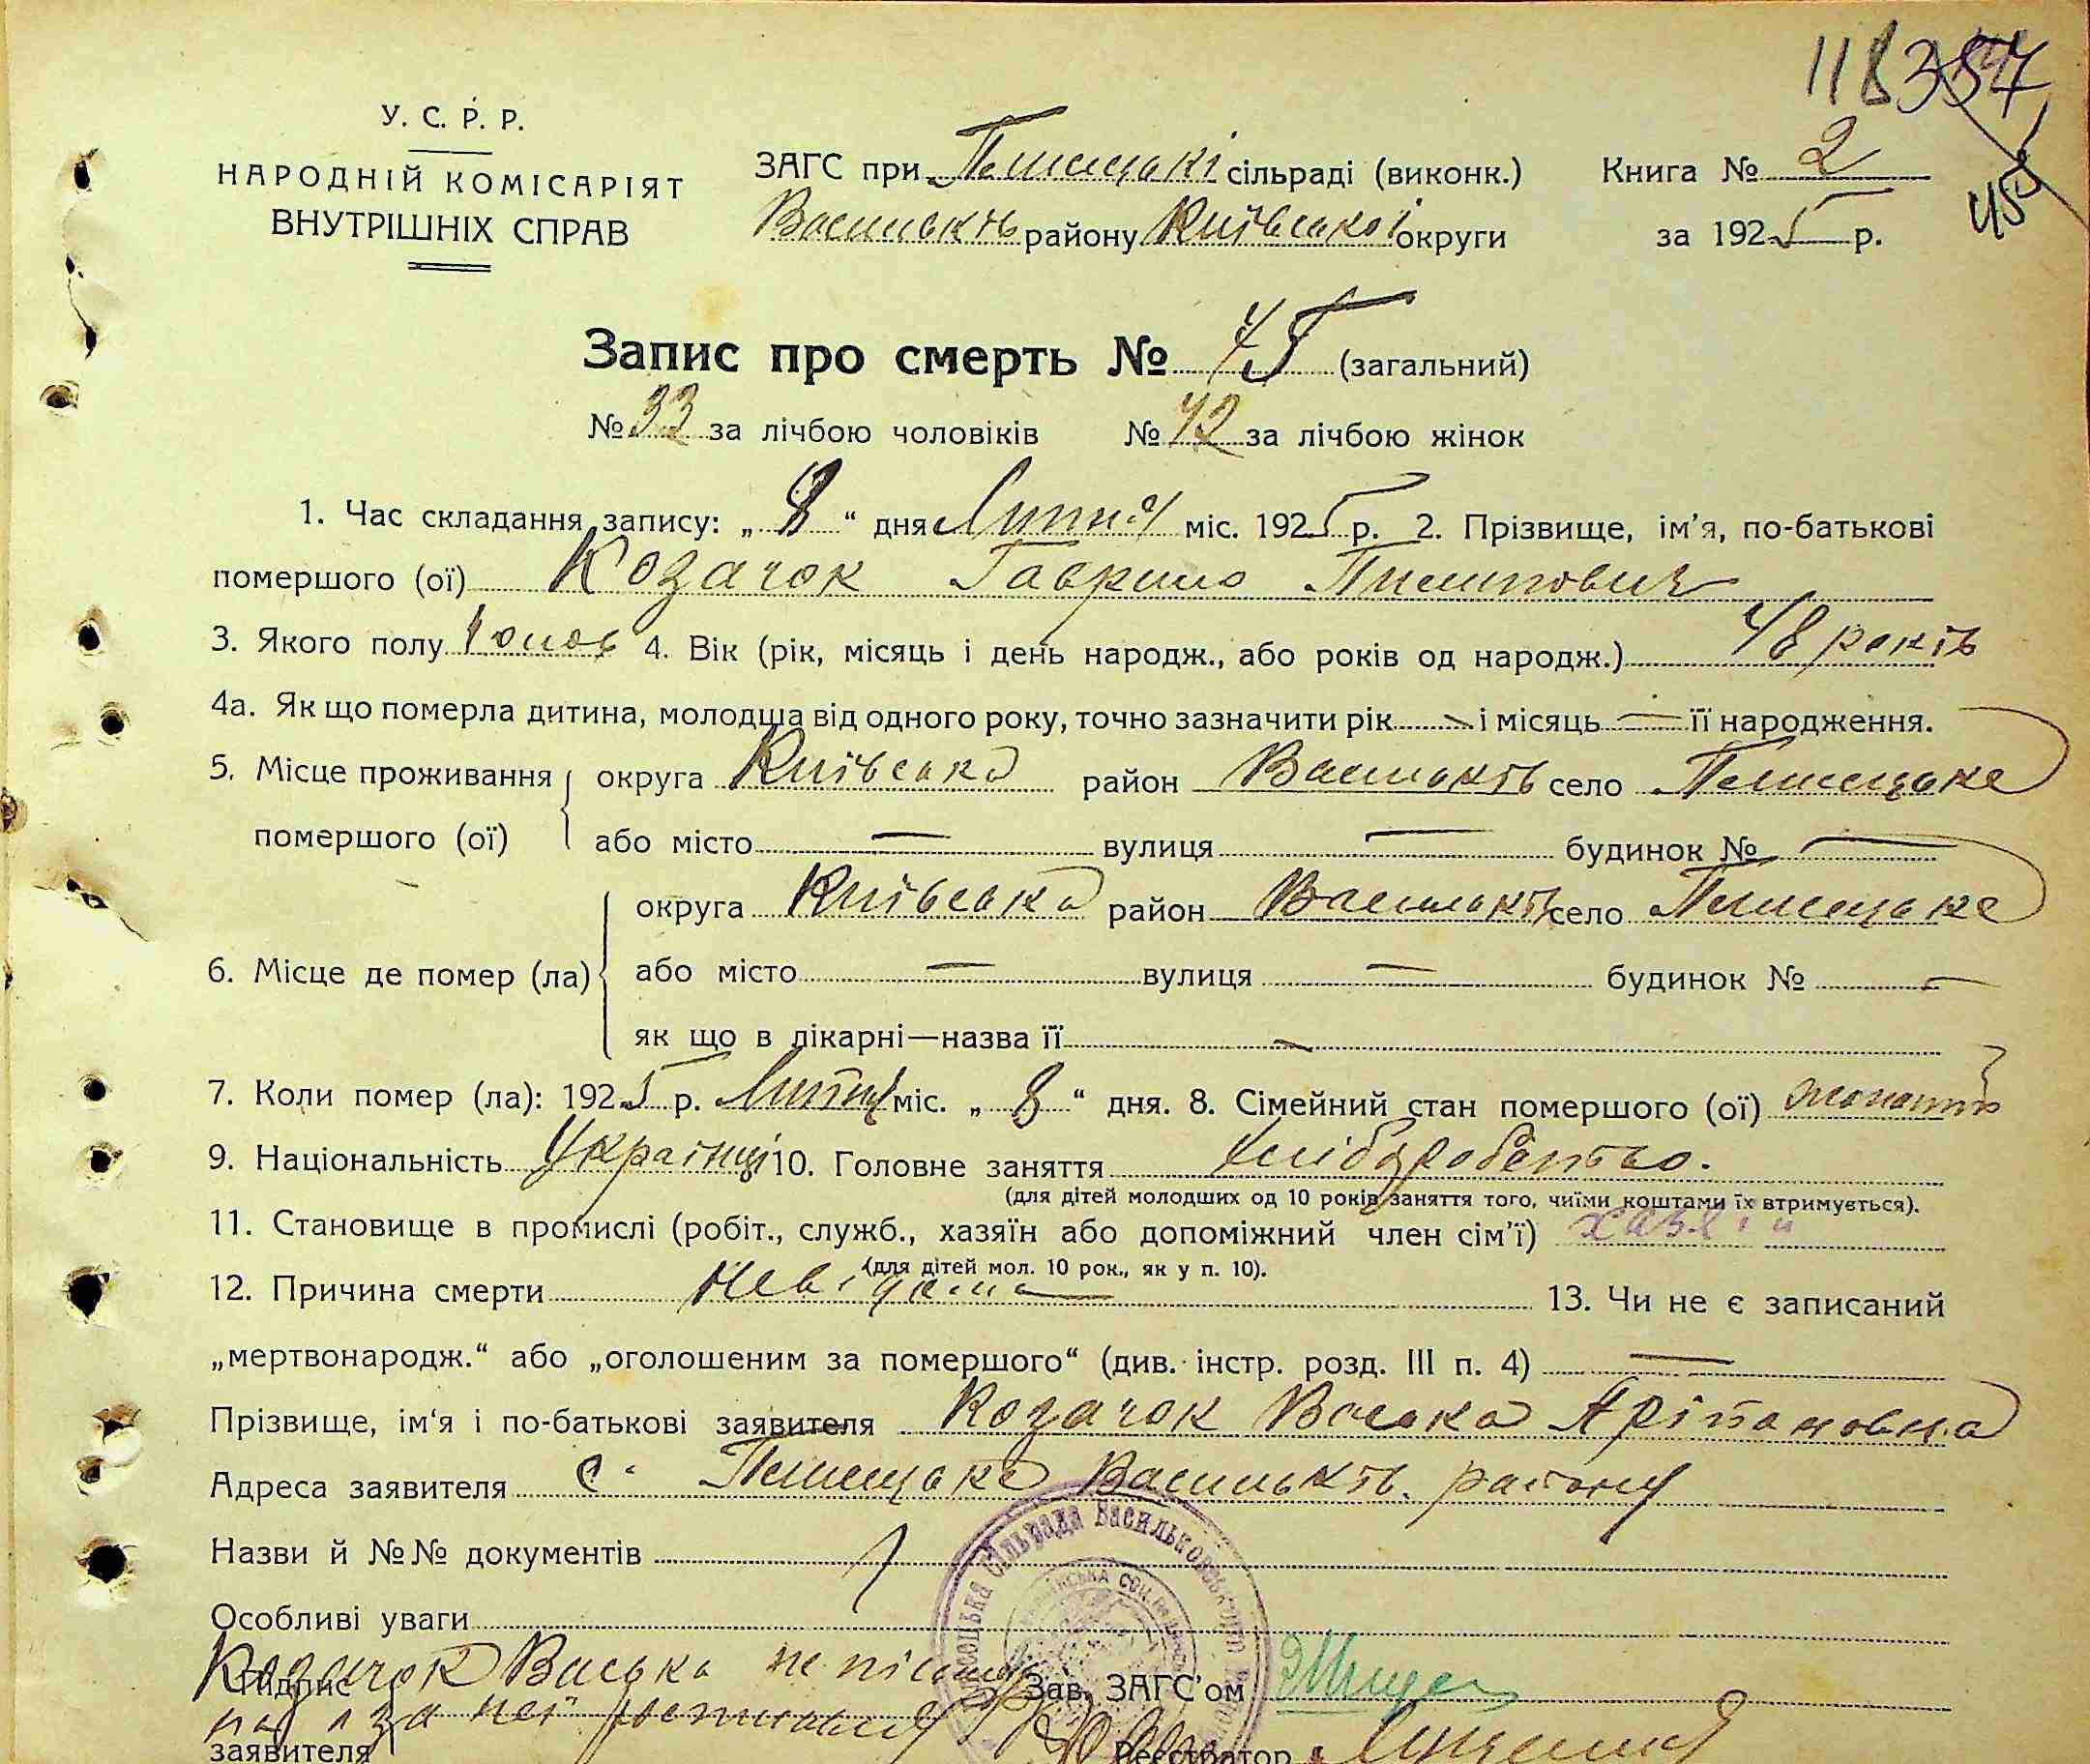 118 357
У. С. Р. Р.
НАРОДНІЙ КОМІСАРІЯТ
ВНУТРІШНІХ СПРАВ
ЗАГС при сільраді (виконк.)
Васильків району Київської округи
Книга № 2
за 1925 р.
45
Запис про смерть № 75 (загальний)
№ 33 за лічбою чоловіків № 42 за лічбою жінок
1. Час складання запису: „ 8 “ дня Липня міс. 1925 р. 2. Прізвище, ім'я, по-батькові
помершого (ої) Козачок Гаврило Пилипович
3. Якого полу чолов 4. Вік (рік, місяць і день народж., або років од народж.) 48 років
4а. Як що померла дитина, молодша від одного року, точно зазначити рік — і місяць — її народження.
5. Місце проживання округа Київська район Васильків село
помершого (ої) або місто — вулиця — будинок № —
округа Київська район Васильків село
6. Місце де помер (ла) або місто — вулиця — будинок № —
як що в лікарні—назва її —
7. Коли помер (ла): 1925 р. Липня міс. „ 8 “ дня. 8. Сімейний стан помершого (ої) жонатий
9. Національність Українці 10. Головне заняття хліборобство.
(для дітей молодших од 10 років заняття того, чиїми коштами їх втримується).
11. Становище в промислі (робіт., служб., хазяїн або допоміжний член сім'ї) хазяїн
(для дітей мол. 10 рок., як у п. 10).
12. Причина смерти невідома 13. Чи не є записаний
„мертвонародж.“ або „оголошеним за помершого“ (див. інстр. розд. III п. 4) —
Прізвище, ім'я і по-батькові заявителя Козачок Васька
Адреса заявителя с. Васильків. району
Назви й №№ документів
Особливі уваги
Козачок Васька не
Підпис Зав. ЗАГС'ом
за неї
заявителя Реєстратор
сільрада Васильковського